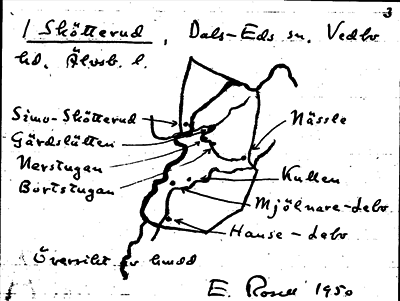 3
1 Skötterud, Dals-Eds sn. Vedbo
hd. Älvsb. l.
Simo-Skötterud
Gärdslätten
Nerstugan
Bortstugan
Nässle
Kullen
Mjölnare-delo
Hanse-delo
Översikt av hmdd
E. Rosell 1950